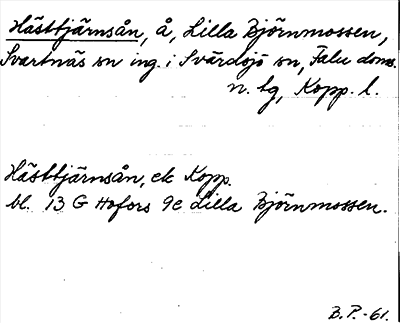 Hästtjärnsån, å, Lilla Björnmossen,
Svartnäs sn ing. i Svärdsjö sn, Falu doms.
n. tg, Kopp. l.
Hästtjärnsån, ek Kopp.
bl. 13 G Hofors 9e Lilla Björnmossen.
B.P.-61.